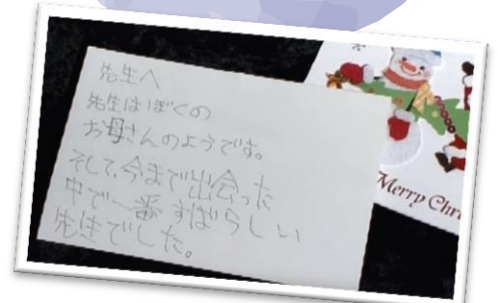 先生へ
先生はぼくの
お母さんのようです。
そして、今まで出会った
中で一番すばらしい
先生でした。
Merry Chr